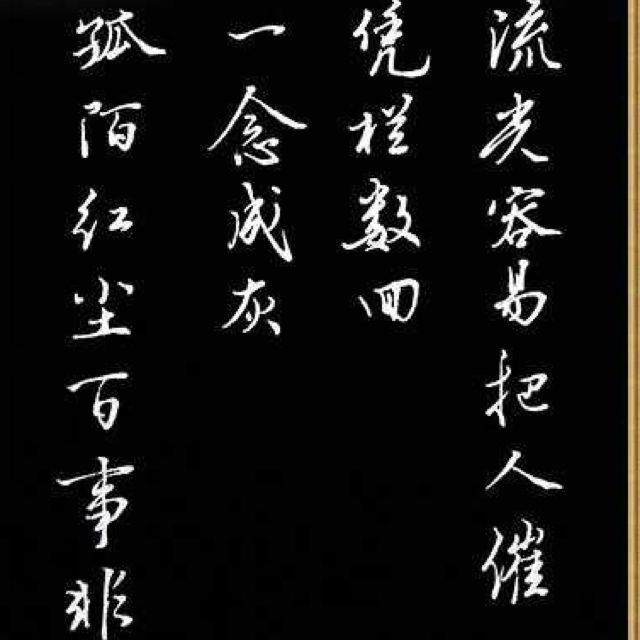 流光容易把人催
凭栏数回
一念成灰
孤陌红尘百事非